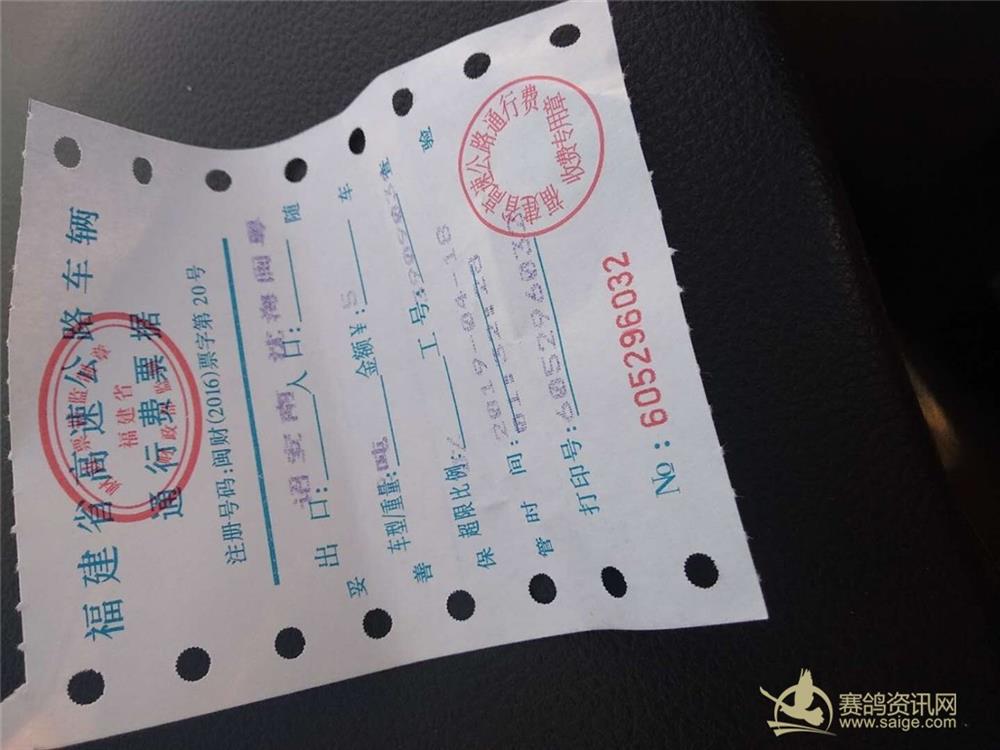 福建省高速公路车辆
通行费票据
福建省
注册号码:闽财(2016)票字第20号
出口: 入口:
车型/重量: 金额¥:5
超限比例: 工号:
2019-04-18
时间:
打印号:605296032
妥善保管 随车
验
No:605296032
福建省高速公路通行费
收费专用章
赛鸽资讯网
www.saige.com